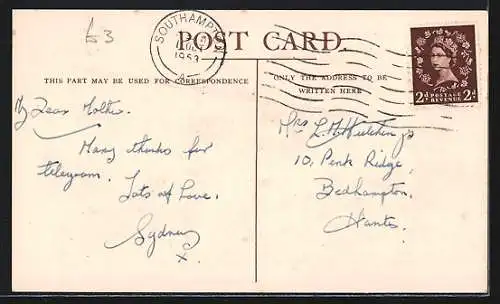 £3
SOUTHAMPTON
1953
POST CARD.
THIS PART MAY BE USED FOR CORRESPONDENCE
ONLY THE ADDRESS TO BE
WRITTEN HERE
2d POSTAGE REVENUE 2d
My Dear Mother.
Many thanks for
telegram.
Lots of Love.
Sydney
x
Mrs L. M. Hutchings
10, Penk Ridge,
Bedhampton,
Hants.